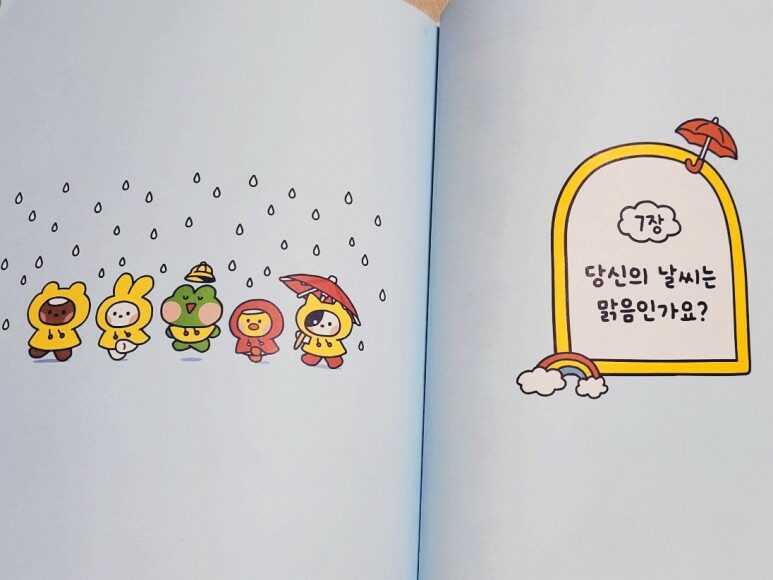 7장
당신의 날씨는
맑음인가요?